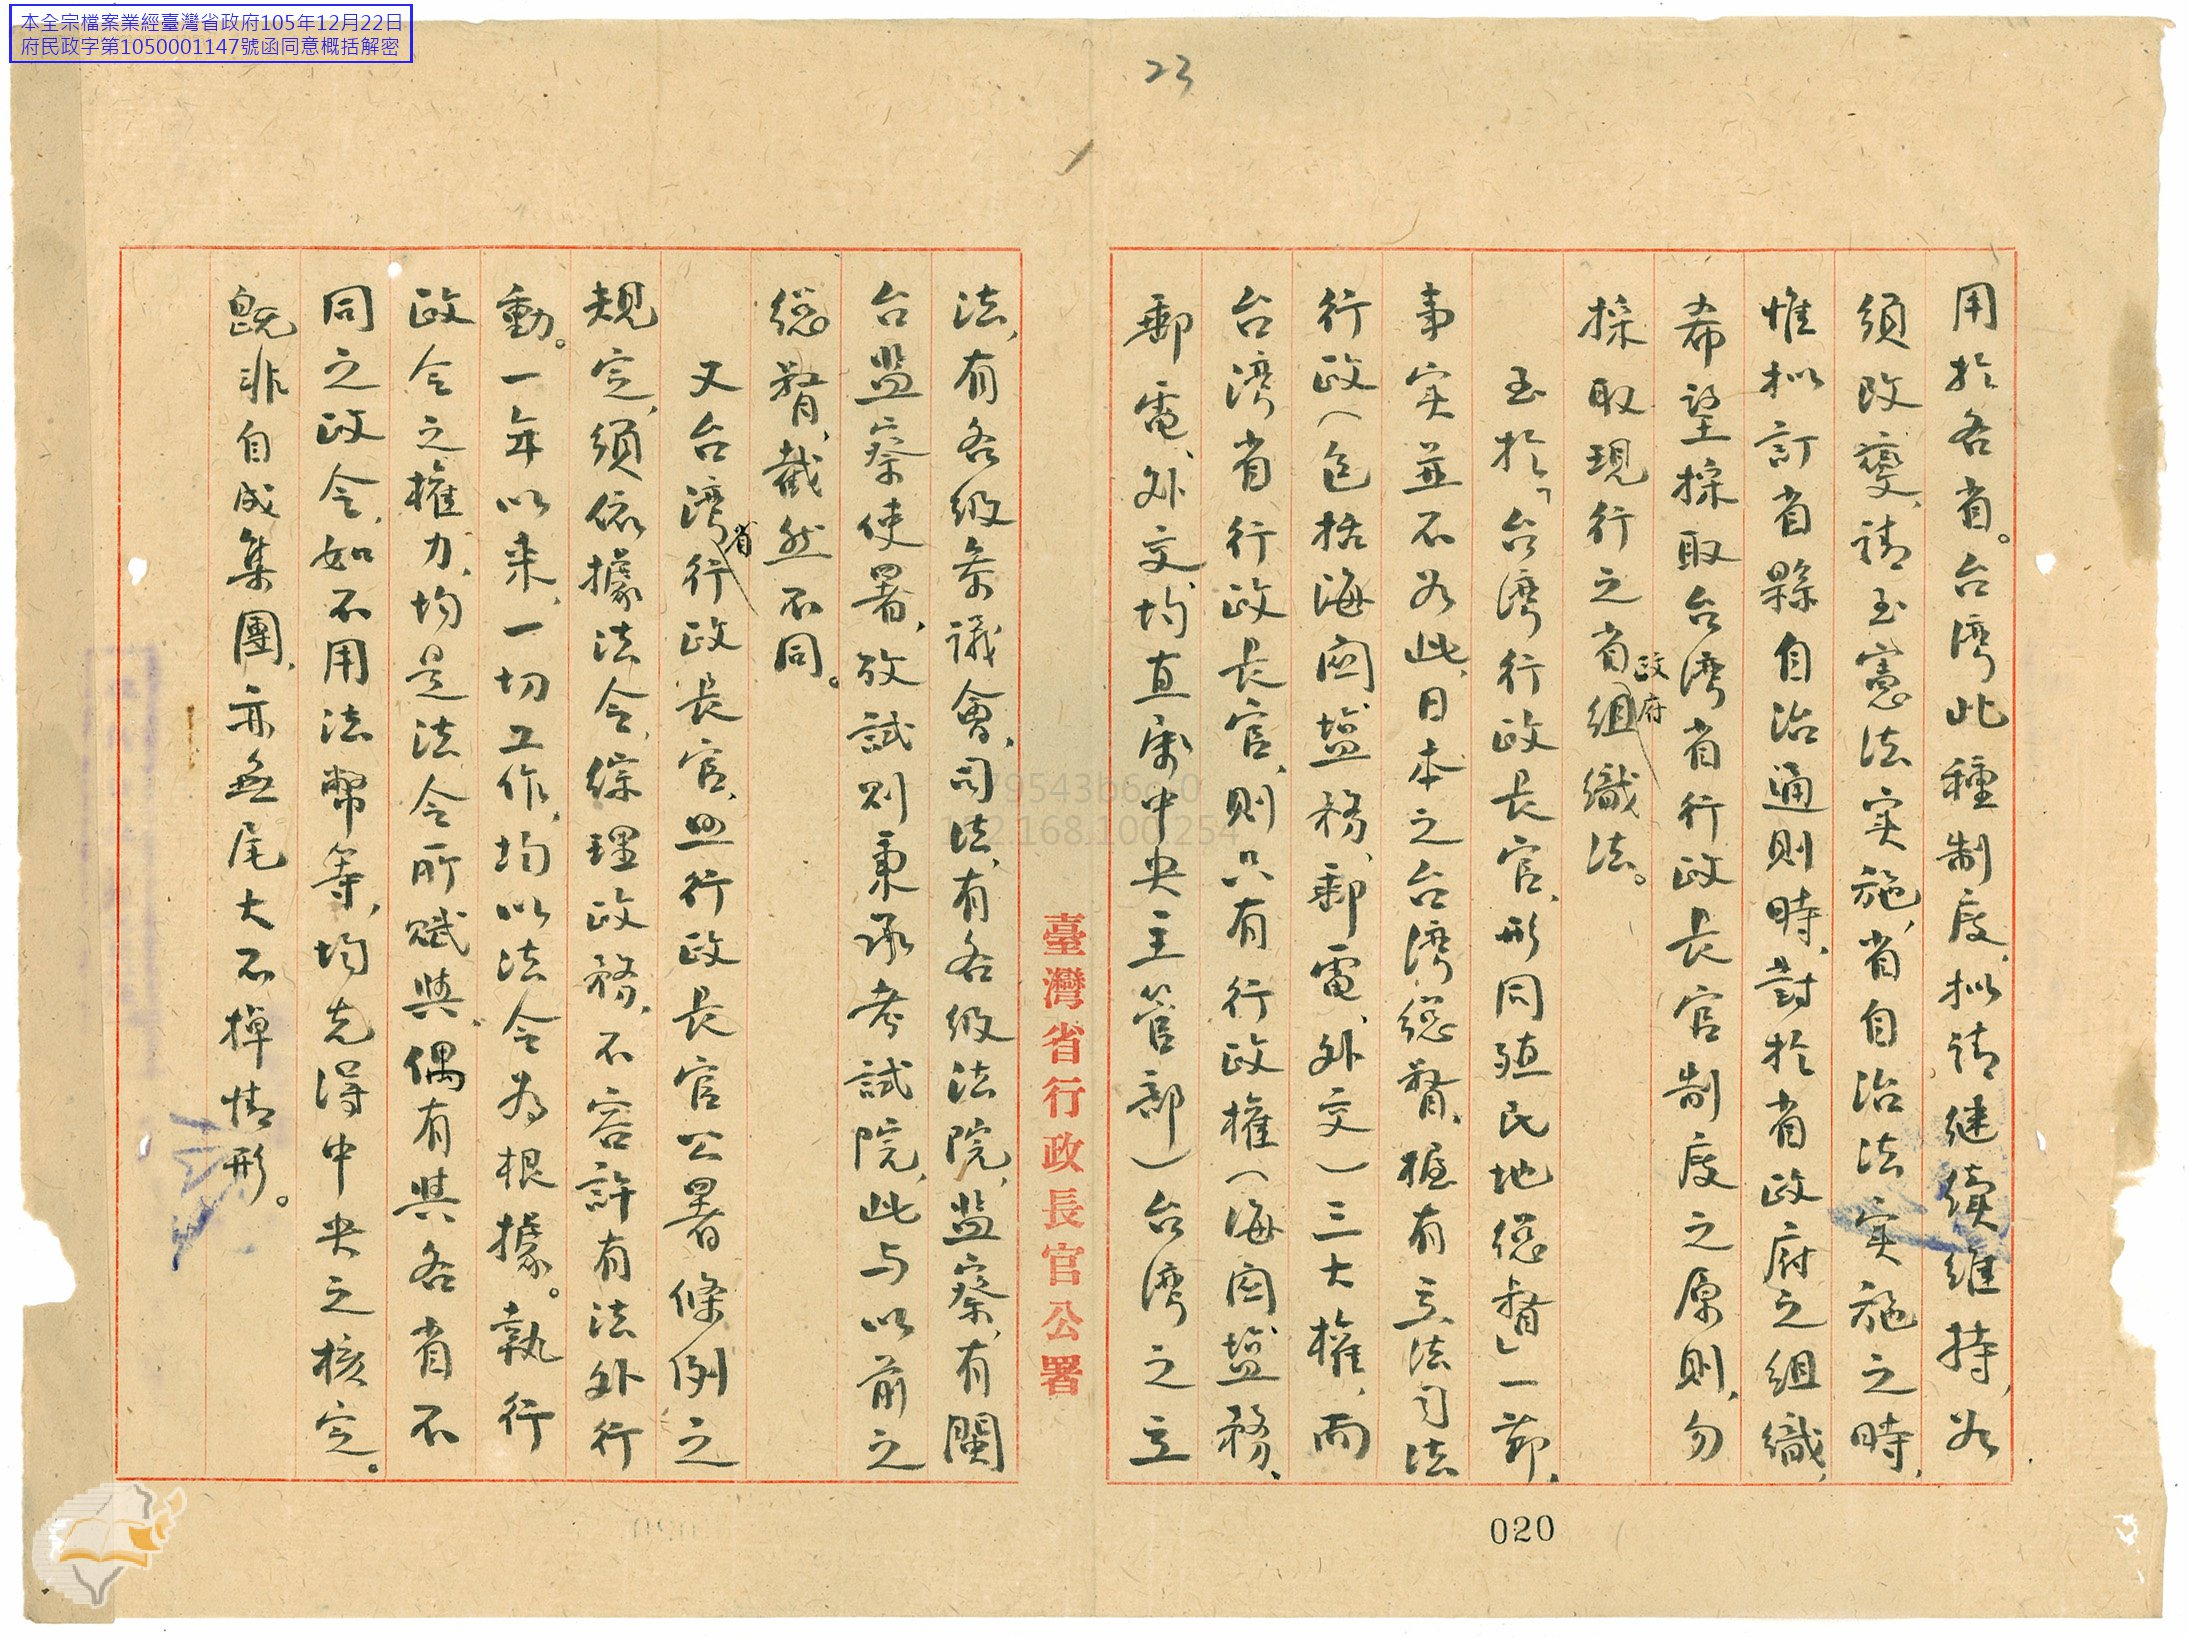 本全宗檔案業經臺灣省政府105年12月22日
府民政字第1050001147號函同意概括解密
23
用於各省。台湾此種制度、拟請继續維持、如
須改變、請至憲法实施、省自治法实施之時、
惟拟訂省縣自治通則時、對於省政府之組織、
希望採取台湾省行政長官制度之原則、勿
採取現行之省政府組織法。
至於「台湾行政長官、形同殖民地總督」一節、
事实並不如此、日本之台湾總督、握有立法司法
行政（包括海關塩務、郵電、外交）三大權、而
台湾省行政長官、則只有行政權（海關塩務、
郵電、外交、均直屬中央主管部）台湾之立
臺灣省行政長官公署
法、有各級参議會、司法、有各級法院、监察、有閩
台监察使署、攷試則秉承考試院、此与以前之
總督、截然不同。
又台湾省行政長官、照行政長官公署條例之
規定、須依據法令、綜理政務、不容許有法外行
動。一年以来、一切工作、均以法令為根據。執行
政令之權力、均是法令所賦與、偶有與各省不
同之政令、如不用法幣等、均先得中央之核定。
既非自成集團、亦無尾大不掉情形。
020